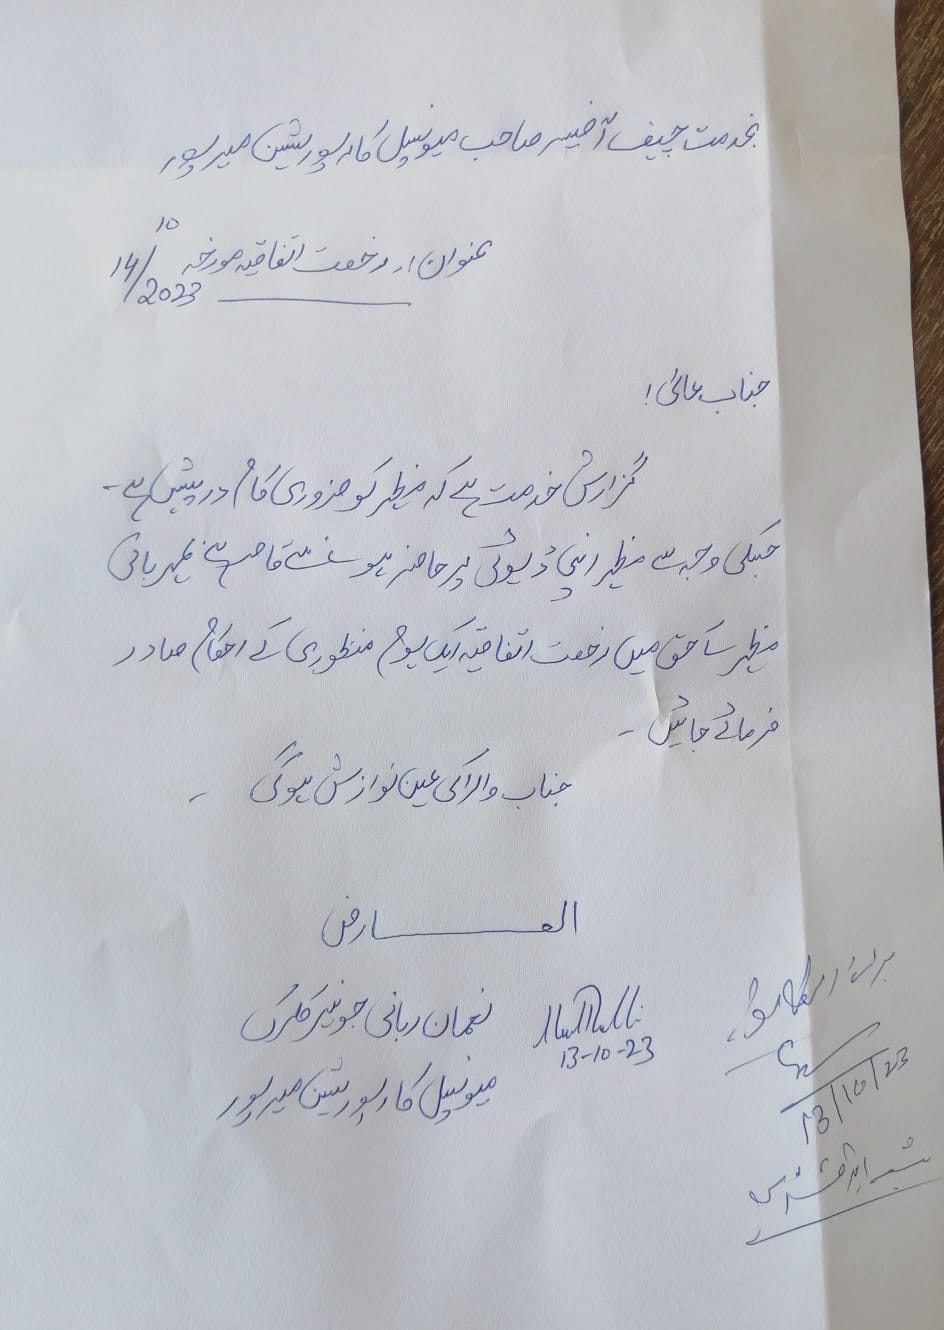 بخدمت چیف آفیسر صاحب میونسپل کارپوریشن میرپور
عنوان :۔ رخصت اتفاقیہ مورخہ 14/10/2023
جناب عالی!
گزارش خدمت ہے کہ مظہر کو ضروری کام درپیش ہے۔
جسکی وجہ سے مظہر اپنی ڈیوٹی پر حاضر ہونے سے قاصر ہے بمہربانی
مظہر کے حق میں رخصت اتفاقیہ ایک یوم منظوری کے احکام صادر
فرمائے جائیں ۔
جناب والا کی عین نوازش ہوگی ۔
العارض
نعمان ربانی جونیئر کلرک
13-10-23
میونسپل کارپوریشن میرپور
13/10/23